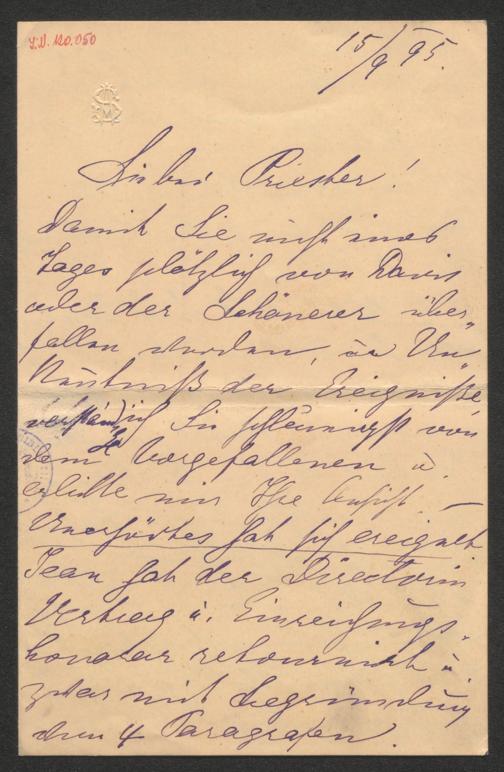 I.N. 120.050
15/9 95.
Liebes Priester!
Damit Sie nicht eines
Tages plötzlich von Davis
oder der Schönerer über
fallen werden, in Un
Kentniß der Ereigniße
verständige ich Sie schleunigst von
dem Vorgefallenen u
erbitte mir Ihre Ansicht. —
Unerhörtes hat sich ereignet
Jean hat der Directorin
Vertrag u. Einreichungs-
honorar retournirt u.
zwar mit Begründung
den 4 Paragrafen.